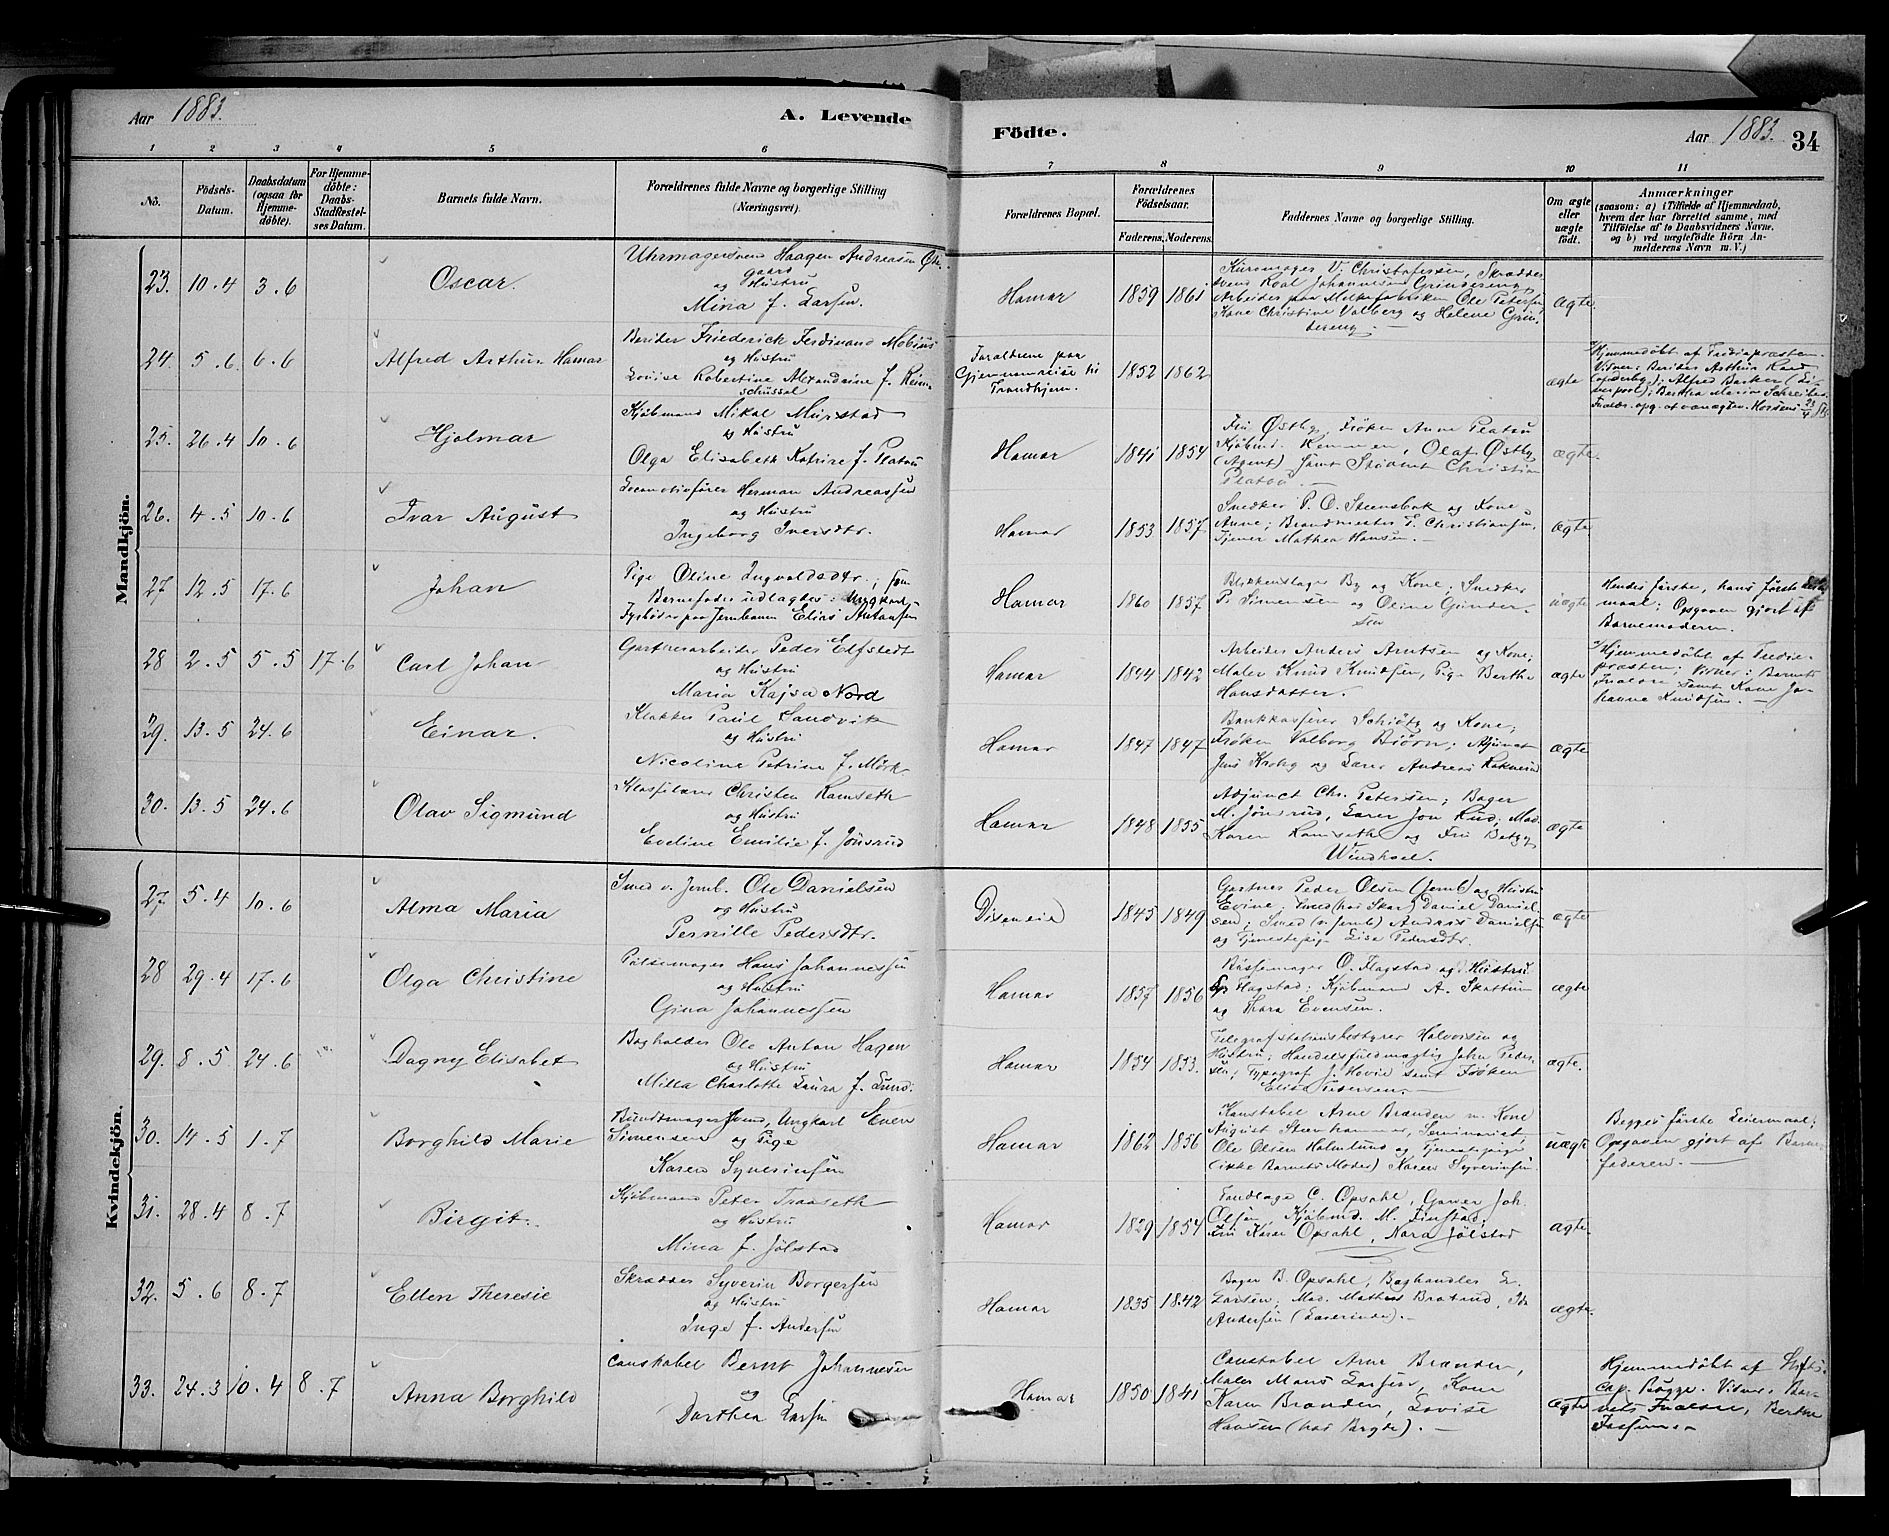 Aar 1883. A. Levende Födte. Aar 1883. 34
1 2 3 4 5 6 7 8 9 10 11
No. Födsels-Datum. Daabsdatum (ogsaa for Hjemmedöbte). For Hjemmedöbte: Daabs-Stadfæstelses Datum. Barnets fulde Navn. Forældrenes fulde Navne og borgerlige Stilling (Næringsvei). Forældrenes Bopæl. Forældrenes Födselsaar. Faderens. Moderens. Faddernes Navne og borgerlige Stilling. Om ægte eller uægte födt. Anmærkninger (saasom: a) i Tilfælde af Hjemmedaab, hvem der har forrettet samme, med Tilföielse af to Daabsvidners Navne, og b) ved uægtefödte Börn Anmelderens Navn m. V.)
Mandkjön.
23. 10.4 3.6 Oscar.
Uhrmagersvend Haagen Andreasen
gaard
og Hustru
Mina f. Larsen.
Hamar 1859 1861
Christofersen, Skrædder
svend Roal Johannesen Grindereng,
Arbeider paa Melkefabriken Ole Petersen
Kone Christine Valberg og Helene Grin-
dereng.
Ægte.
24. 5.6. 6.6 Alfred Arthur Hamar
Berider Friederick Ferdinand Mobius
og Hustru
Louise Robertine Alexandrine f. Reim-
schüssel
Forældrene paa
Gjennemreise til
Trondhjem.
1852 1862
ægte
Hjemmedöbt af
Vidner: Berider Arthur
Alfred Barker (Li-
verpool); Bertha Maria
25. 26.4 10.6 Hjalmar
Kjöbmand Mikal Murstad
og Hustru
Olga Elisabeth Katrine f. Platou
Hamar 1841 1854
Fru Östby, Fröken Anne Platou
Kjöbmd. Kemmen, Olaf Östby
(Agent) samt Student Christian
Platou.
ægte.
26. 4.5 10.6 Ivar August
Locomotivförer Herman Andreassen
og Hustru
Ingeborg Iversdtr.
Hamar 1853 1857
Snedker P. O. Steensbak og Kone
Anne; Brandmester T. Christiansen,
Tjener Mathea Hansen.
Ægte
27 12.5 17.6 Johan
Pige Oline Ingvaldsdtr.; som
Barnefader udlagdes: Ungkarl
Fyrböder paa Jernbanen Elias Antonsen
Hamar 1860 1857
Blikkenslager By og Kone; Snedker
P. Simensen og Oline Gunder-
sen
uægte
Hendes förste, hans förste Leier-
maal; Opgaven gjort af
Barnemoderen.
28 2.5 5.5 17.6 Carl Johan
Gartnerarbeider Peder Elfstedt
og Hustru
Maria Kajsa Nord
Hamar 1844 1842
Arbeider Anders Arntsen og Kone;
Maler Knud Knudsen, Pige Berthe
Hansdatter.
ægte
Hjemmedöbt af Tredie-
præsten; Vidner: Barnets
Forældre samt Kone Jo-
hanne Knudsen.
29. 13.5 24.6 Einar.
Klokker Paul Sandvik
og Hustru
Nicoline Petrine f. Mörk
Hamar 1847 1847
Bankkasserer Schiötz og Kone,
Fröken Valborg Biörn; Adjunct
Jens Krohg og Lærer Andreas
ægte
30. 13.5 24.6 Olav Sigmund
Klasselærer Christen Ramseth
og Hustru
Eveline Emilie f. Jönsrud
Hamar 1848 1855
Adjunct Chr. Petersen; Bager
M. Jönsrud, Lærer Jon Rud; Mad.
Karen Ramseth og Fru Betzy
Windhoel.
ægte
Kvindekjön.
27. 5.4 10.6 Alma Maria
Smed v. Jernb. Ole Danielsen
og Hustru
Pernille Pedersdtr.
Diseneie 1845 1849
Gartner Peder Olsen (Jernb) og Hustru
Evine; Smed (hos Skar) Daniel Daniel-
sen; Smed (v. Jernb) Anders Danielsen
og Tjenestepige Lise Pedersdtr.
ægte
28 29.4 17.6 Olga Christine
Pölsemager Hans Johannessen
og Hustru
Gina Johannessen
Hamar 1857 1856
Bössemager O. Flagstad og Hustru
Flagstad; Kjöbmand A. Skattum
og Thora Evensen.
ægte
29. 8.5 24.6 Dagny Elisabet
Bogholder Ole Anton Hagen
og Hustru
Milla Charlotte Laura f. Lund.
Hamar 1854 1853.
Telegrafstationsbestyrer Halvorsen og
Hustru; Handelsfuldmægtig John Peder-
sen; Typograf J. Hovie samt Fröken
Elise Pedersen.
ægte.
30. 14.5 1.7 Borghild Marie
Bundtmagersvend, Ungkarl Even
Simensen og Pige
Karen Syverinsen
Hamar 1862 1856
Konstabel Arne Brænden m. Kone
August Steenhammer, Seminarist,
Ole Olsen Holmlund og Tjenestepige
(ikke Barnets Moder) Karen Syverinsen.
uægte
Begges förste Leiermaal;
Opgaven gjort af Barne-
faderen.
31. 28.4 8.7 Birgit.
Kjöbmand Peter Traaseth
og Hustru
Mina f. Jölstad
Hamar 1829 1854
Tandlæge C. Opsahl, Garver Joh.
Olsen, Kjöbmd. M. Finstad,
Fru Karen Opsahl, Nora Jölstad
ægte
32. 5.6 8.7 Ellen Theresie
Skrædder Syverin Borgersen
og Hustru
Inge f. Andersen
Hamar 1835 1842
Bager B. Opsahl, Boghandler L.
Larsen; Mad. Mathea Bratrud, Ida
Andersen (Lærerinde).
ægte.
33. 24.3 10.4 8.7 Anna Borghild
Constabel Bernt Johannesen
og
Dorthea Larsen
Hamar 1850 1841
Constabel Arne Brænden,
Maler Hans Larsen, Kone
Karen Brænden, Lovise
Hansen (hos Borgde).
Ægte
Hjemmedöbt af Stifts-
cap. Bugge. Vidner: Bar-
nets Forældre, Berthe